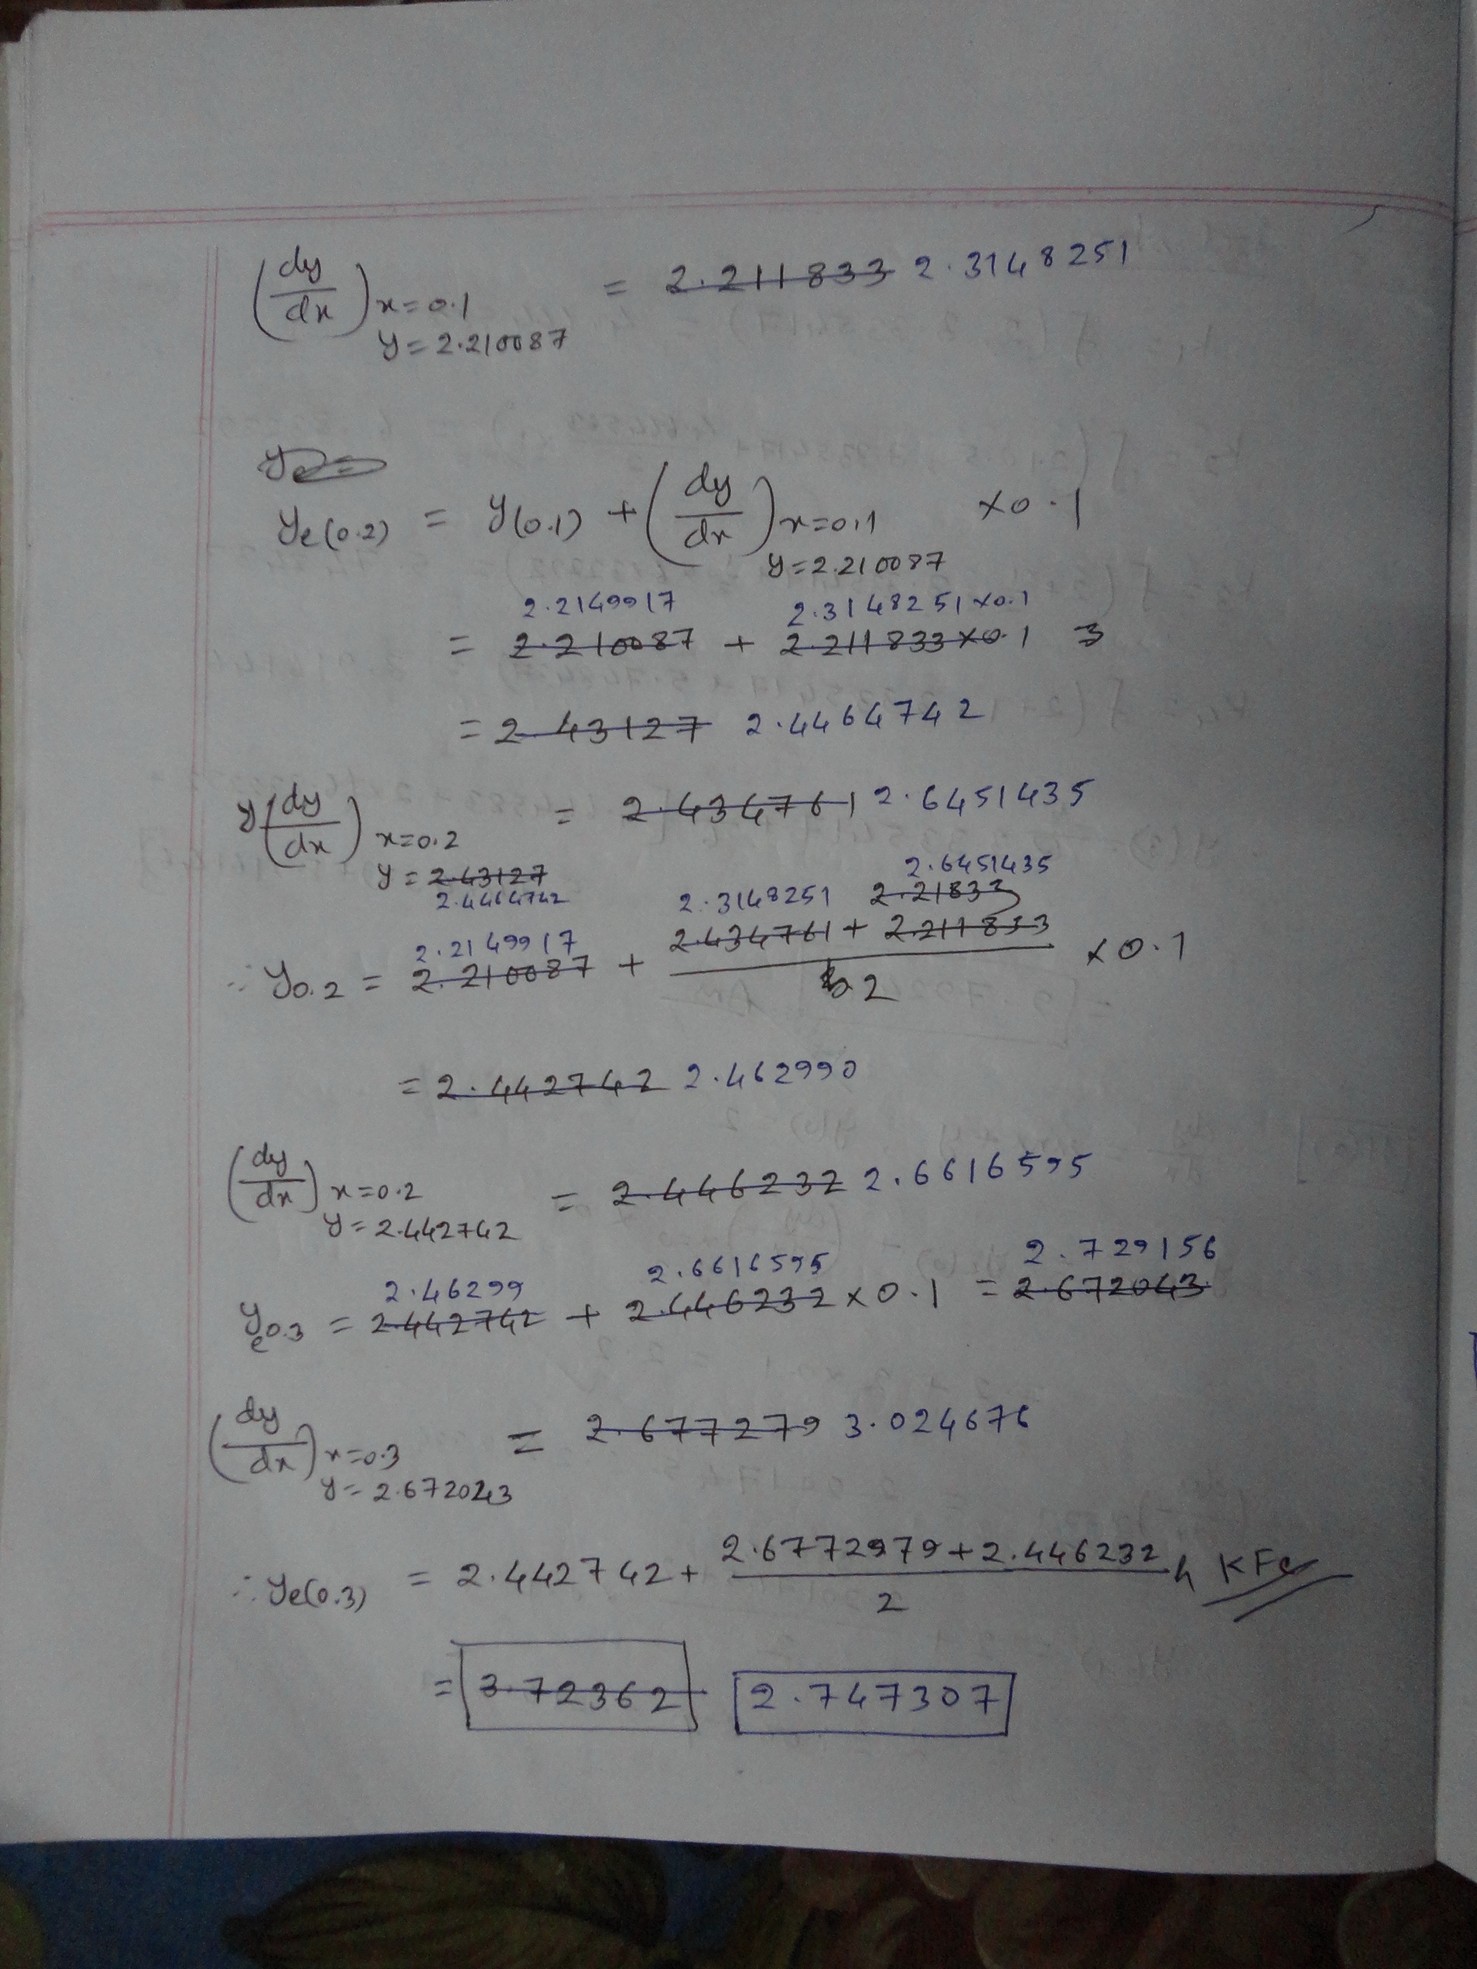 (dy/dx) x=0.1 y=2.210087 = 2.211833 2.3148251
ye=
ye(0.2) = y(0.1) + (dy/dx) x=0.1 y=2.210087 × 0.1
2.2149917 2.3148251×0.1
= 2.210087 + 2.211833×0.1
= 2.43127 2.4464742
y(dy/dx) x=0.2 y=2.43127 2.4464742 = 2.434761 2.6451435
2.3148251 2.6451435 2.21833
∴ y0.2 = 2.2149917 2.210087 + (2.434761 + 2.211833)/2 × 0.1
= 2.442742 2.462990
(dy/dx) x=0.2 y=2.442742 = 2.446232 2.6616595
2.46299 2.6616595 2.729156
ye0.3 = 2.442742 + 2.446232 × 0.1 = 2.672043
(dy/dx) x=0.3 y=2.672043 = 2.677279 3.024676
∴ ye(0.3) = 2.442742 + (2.6772979 + 2.446232)/2 h
= 3.72362 2.747307